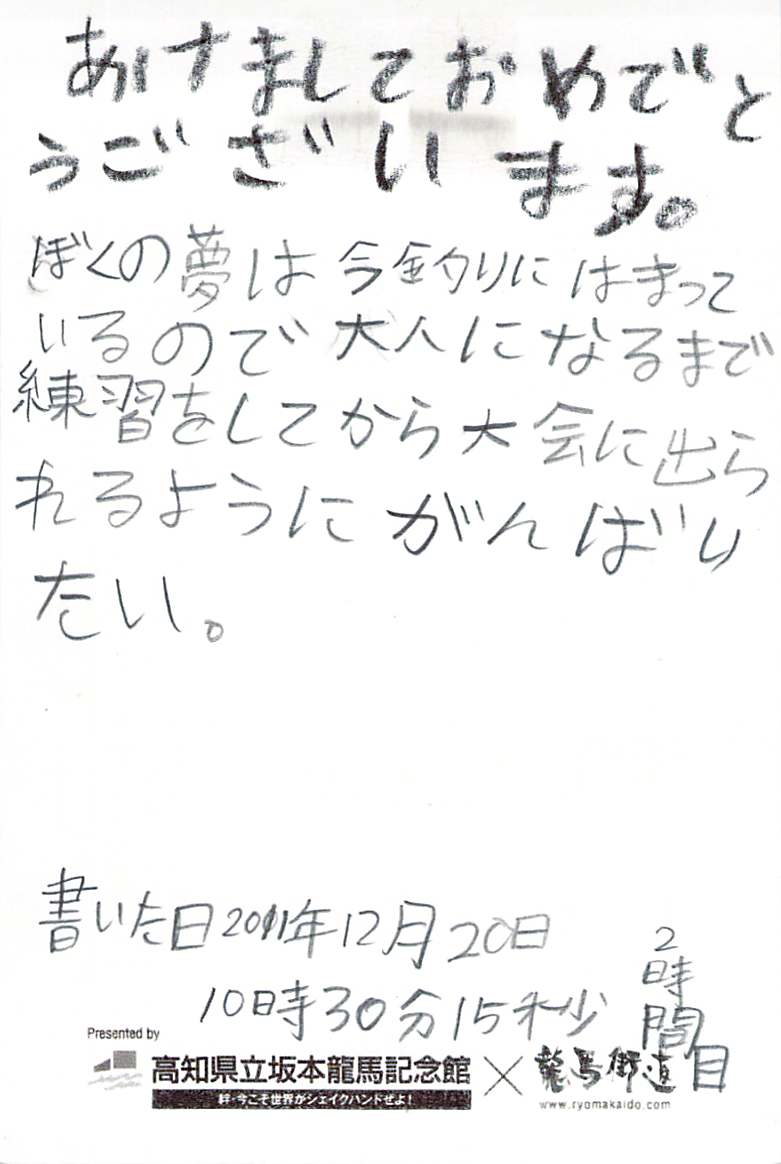 あけましておめでと
うございます。
ぼくの夢は今釣りにはまって
いるので大人になるまで
練習をしてから大会に出ら
れるようにがんばり
たい。
書いた日2011年12月20日
10時30分15秒
2時間目
Presented by
高知県立坂本龍馬記念館×龍馬街道
絆・今こそ世界がシェイクハンドぜよ!
www.ryomakaido.com